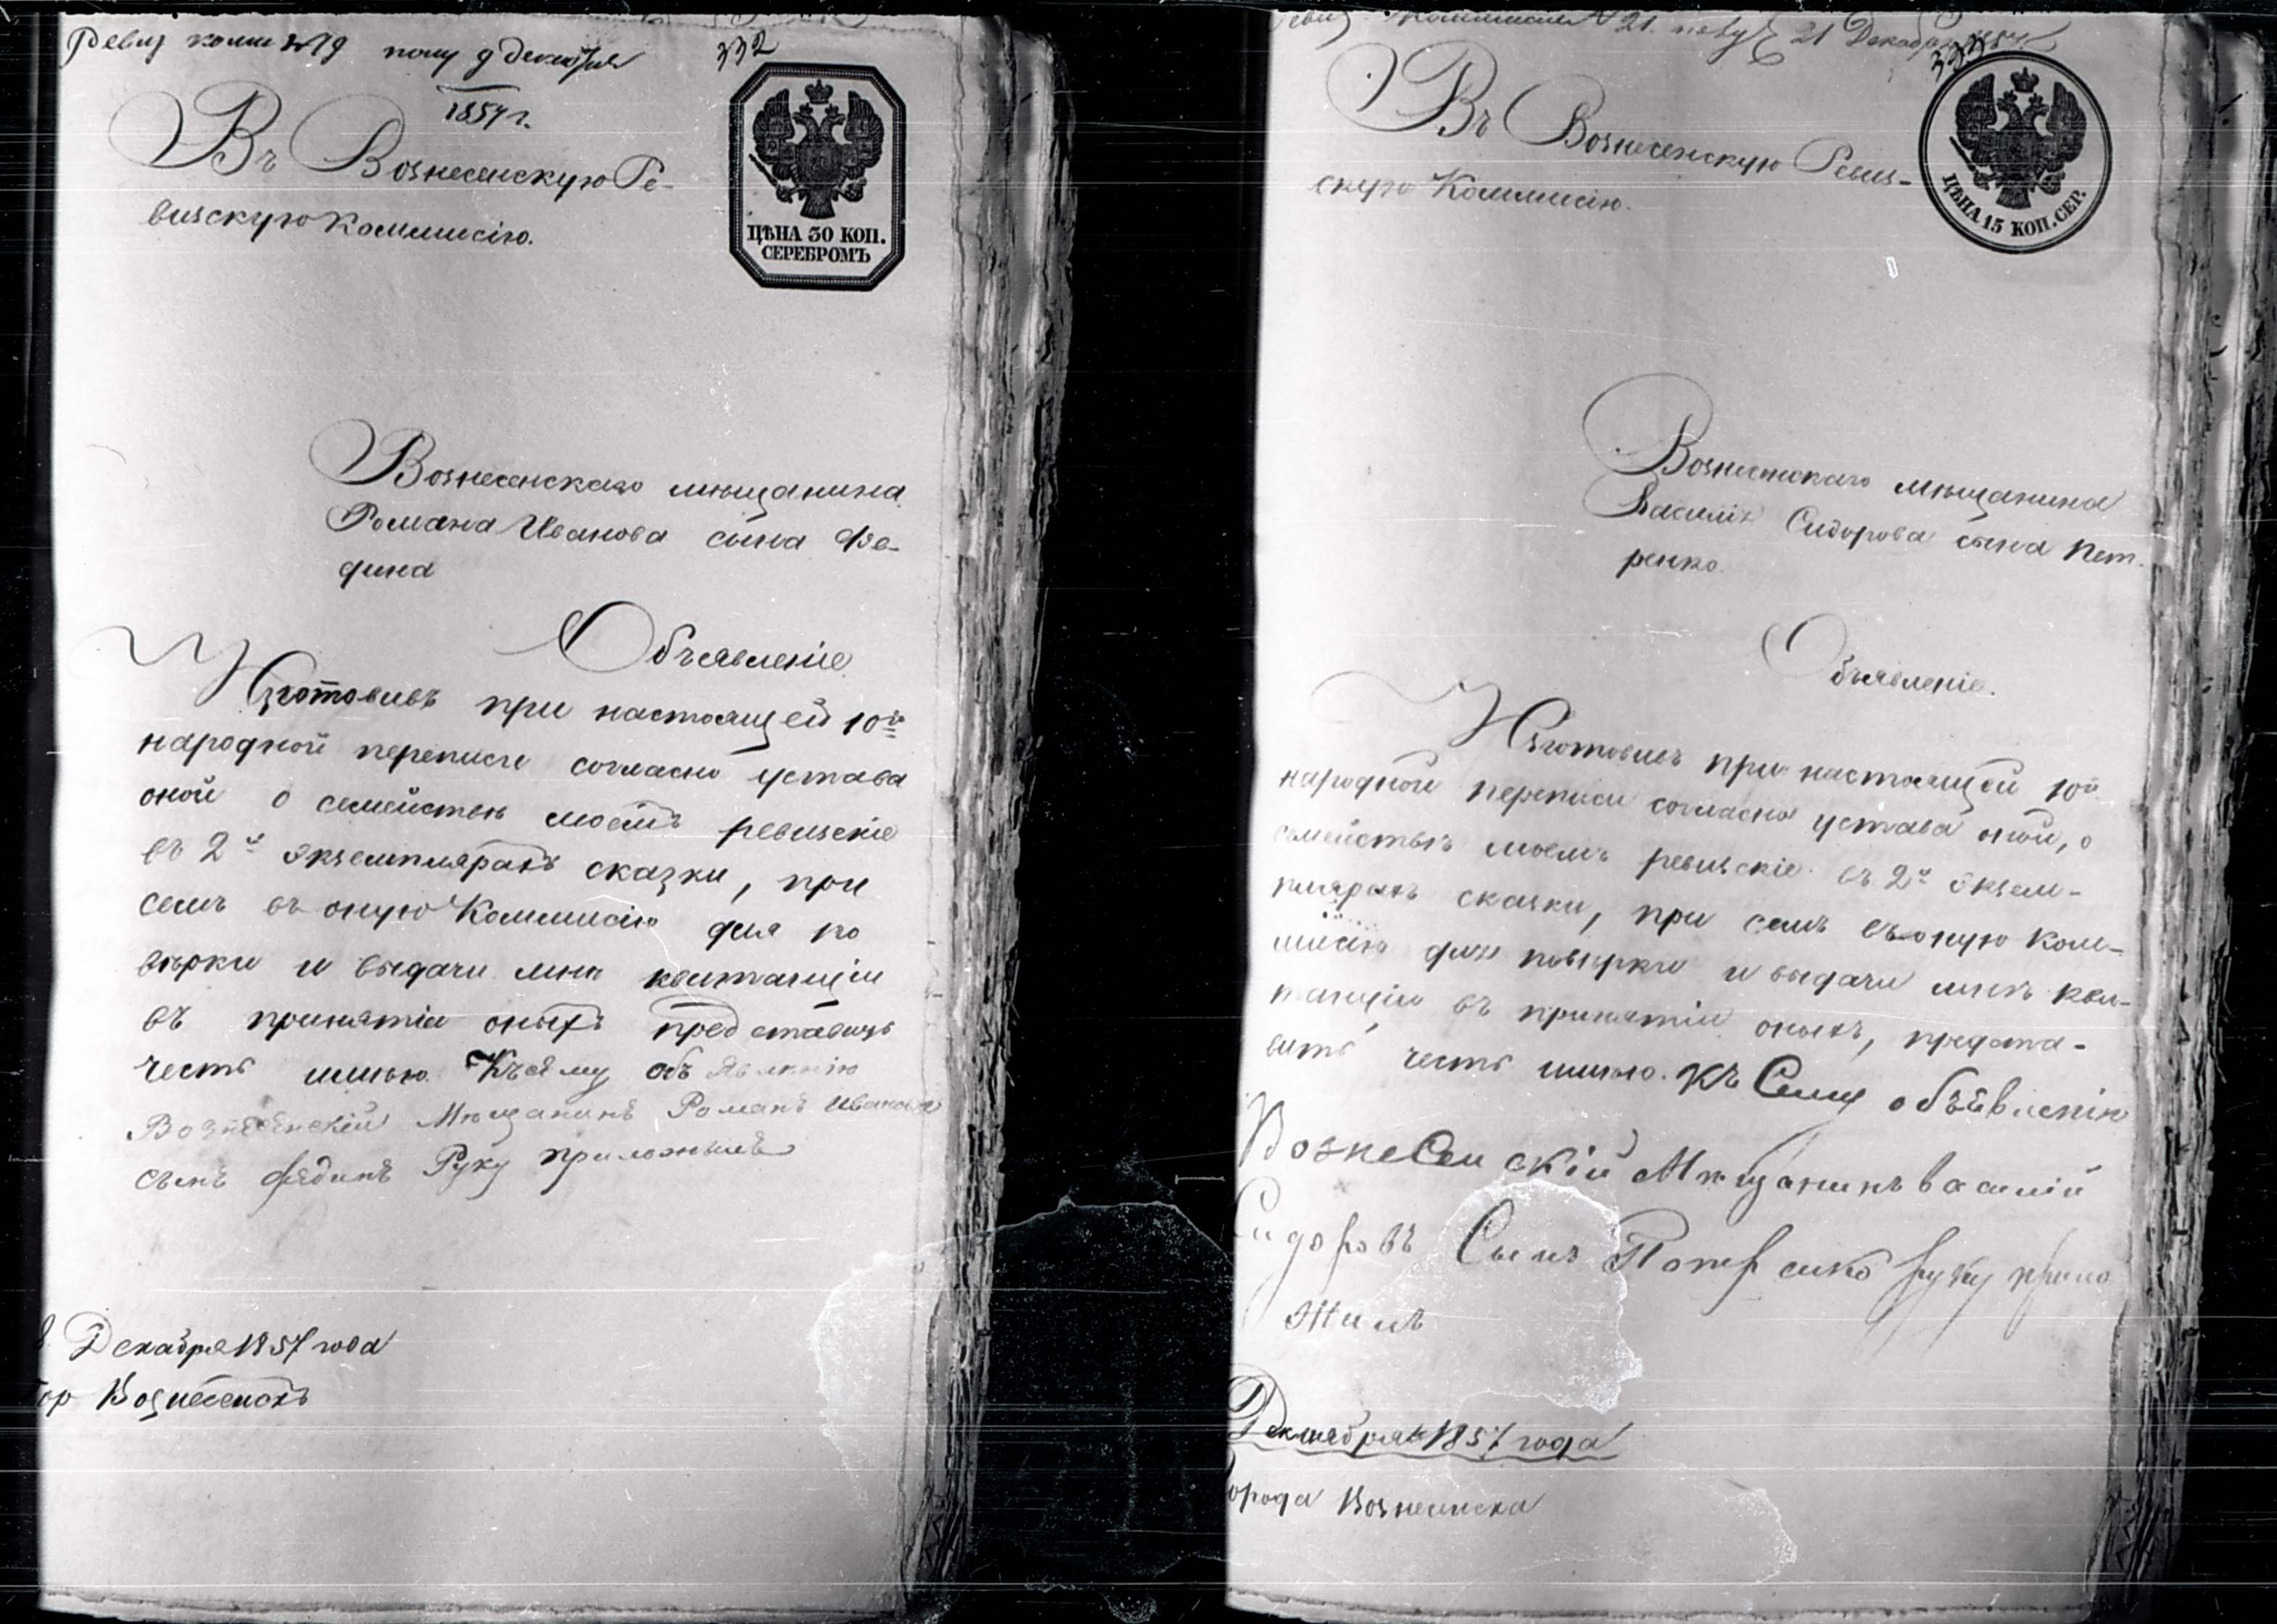 Ревиз комм № 19 полу 9 декабря
1857 г.
332
Въ Вознесенскую Ре-
визскую Коммисію.
ЦѢНА 30 КОП.
СЕРЕБРОМЪ
Вознесенскаго мѣщанина
Романа Иванова сына Фе-
дина
Объявленіе
Изготовивъ при настоящей 10й
народной переписи согласно устава
оной о семействѣ моемъ ревизскіе
въ 2х экземплярахъ сказки, при
семъ въ оную Коммисію для по
вѣрки и выдачи мнѣ квитанціи
въ принятіи оныхъ представить
честь имѣю Къ сему объявленію
Вознесенскій Мѣщанинъ Романъ Ивановъ
сынъ Фединъ Руку приложилъ
8 Декабря 1857 года
Гор Вознесенскъ
Ревиз. Коммисіи № 21. полу 21 Декабря 1857
333
Въ Вознесенскую Ревиз-
скую Коммисію.
ЦѢНА 15 КОП. СЕР.
Вознесенскаго мѣщанина
Василія Сидорова сына Пет-
ренко.
Объявленіе.
Изготовивъ при настоящей 10й
народной переписи согласно устава оной, о
семействѣ моемъ ревизскіе въ 2х экзем-
плярахъ сказки, при семъ въ оную Ком-
мисію для повѣрки и выдачи мнѣ кви-
танціи въ принятіи оныхъ, предста-
вить честь имѣю. Къ Сему объявленію
Вознесенскій Мѣщанинъ Василій
Сидоровъ Сынъ Петренко руку прило
жилъ
Декабря 1857 года
города Вознесенска